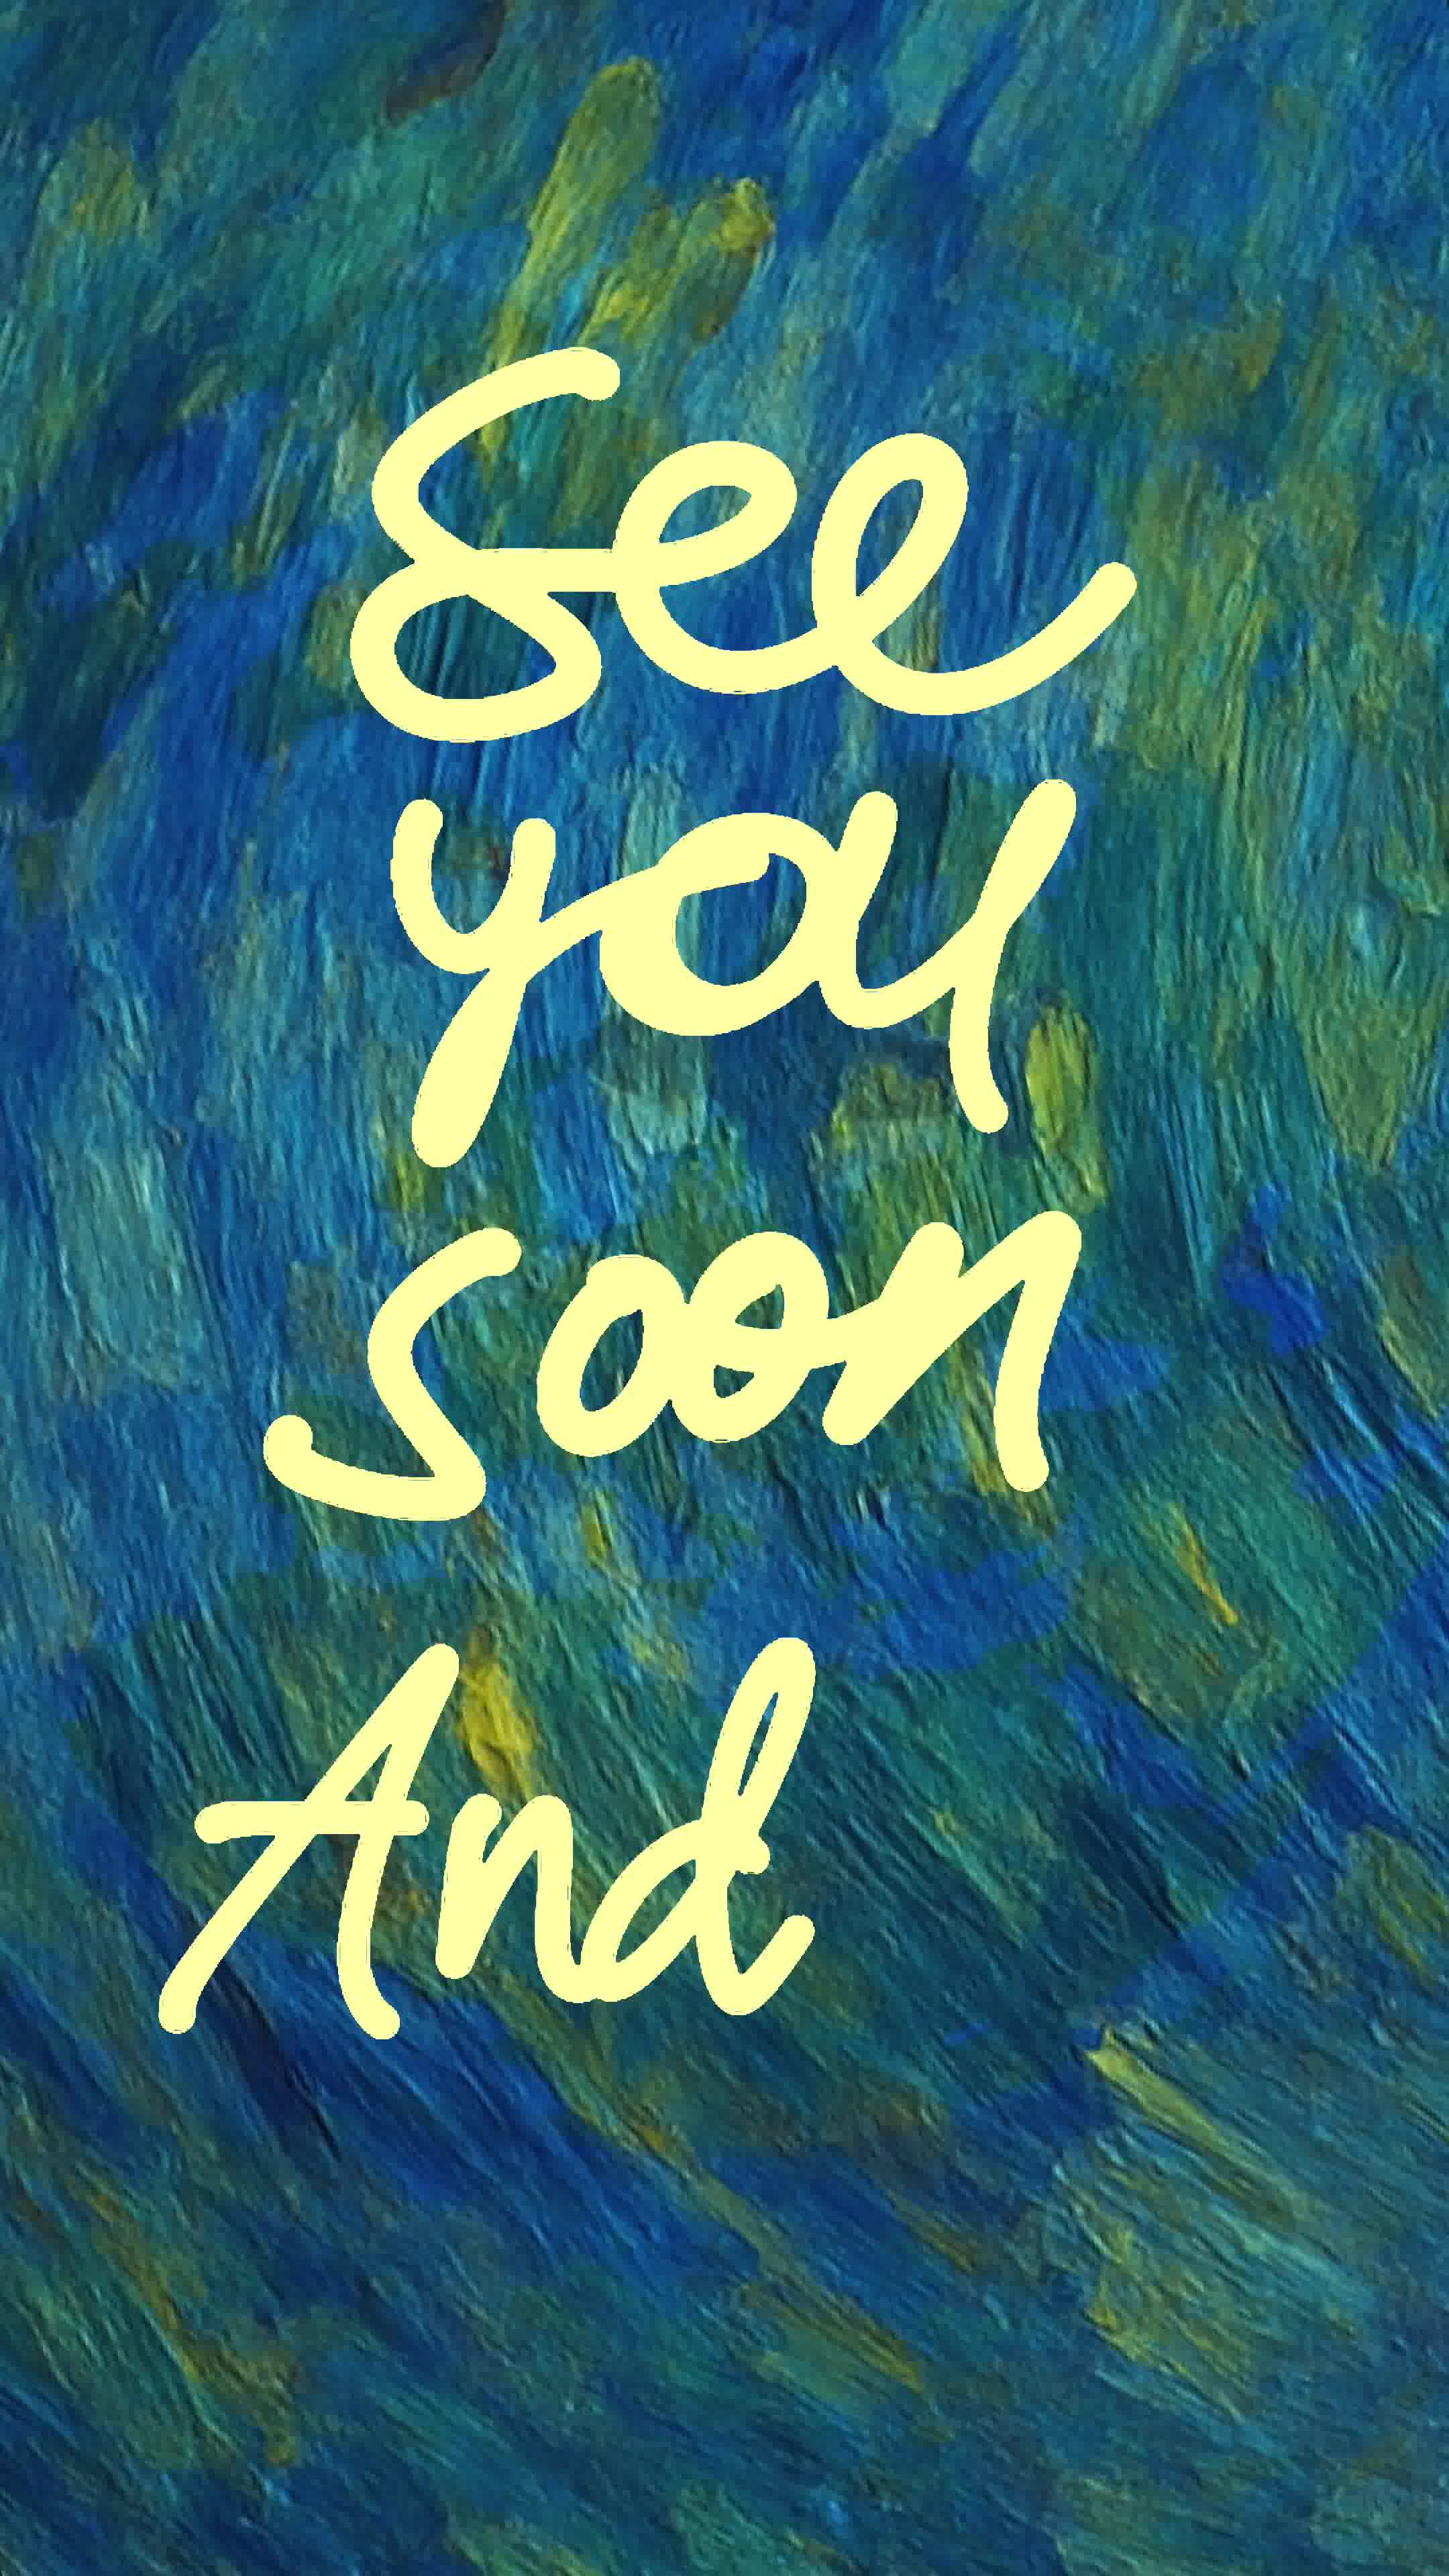 See
you
soon
And